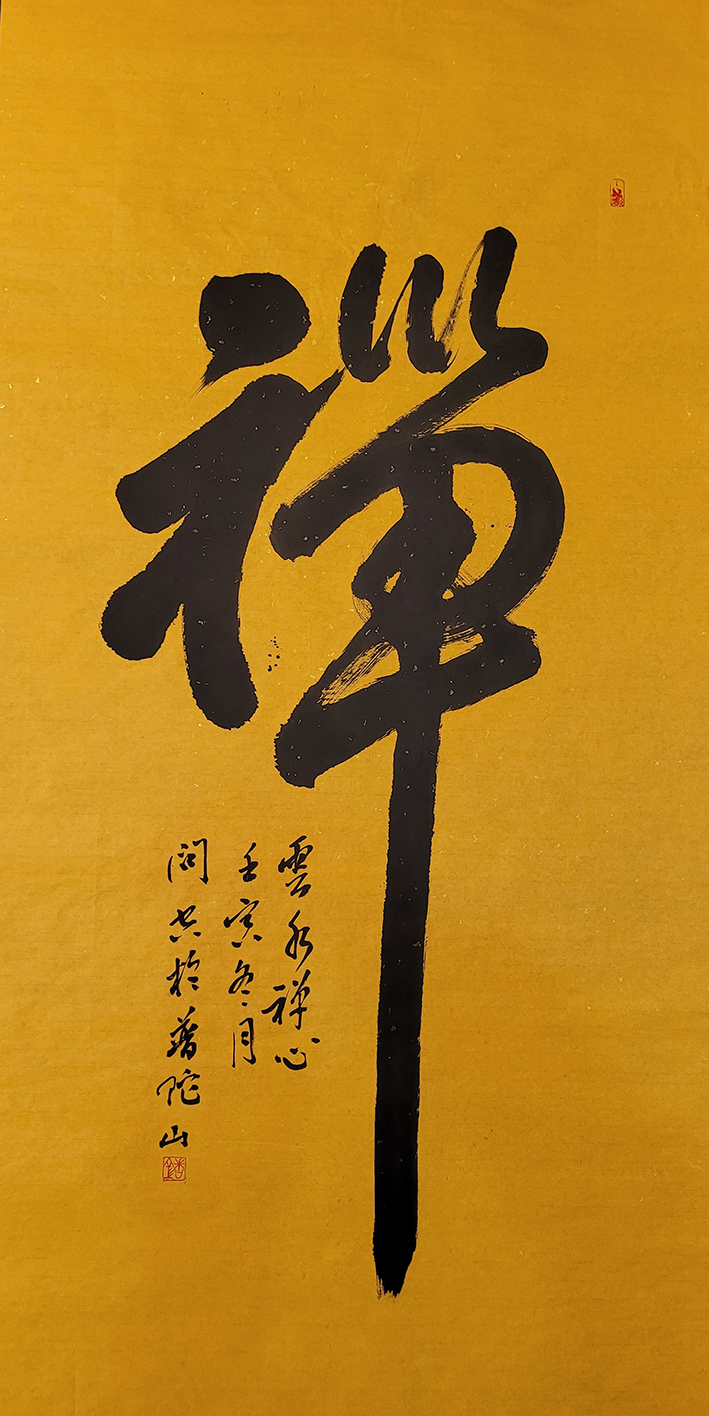 禪
雲水禅心
壬寅冬月
问空於普陀山